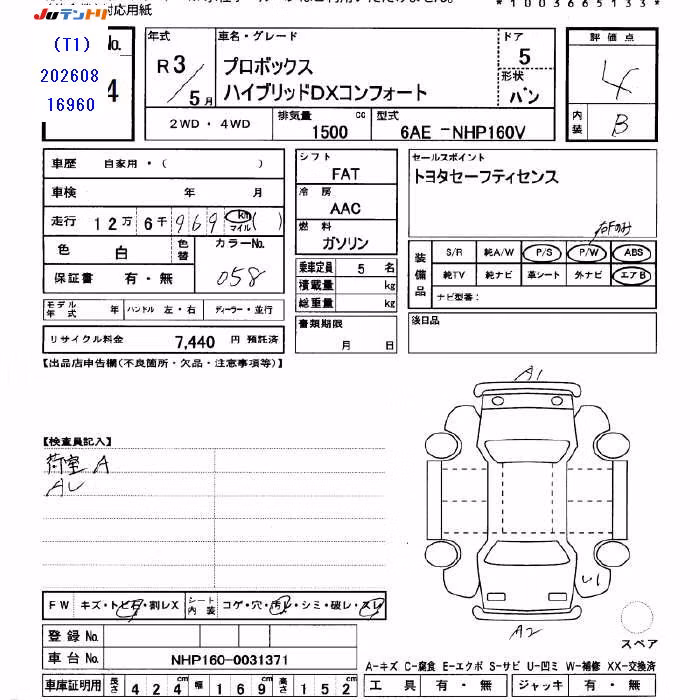 Juテントリ
対応用紙
*1003665133*
(T1)
202608
16960
No.
4
年式
R3/5月
車名・グレード
プロボックス
ハイブリッドDXコンフォート
ドア
5
形状
バン
評価点
4
内装
B
2WD・4WD
排気量
1500
cc
型式
6AE-NHP160V
車歴 自家用・( )
車検 年 月
走行 12万6千969 km マイル ( )
色 白 色替
カラーNo.
058
保証書 有・無
モデル年式 年 ハンドル 左・右 ディーラー・並行
リサイクル料金 7,440 円 預託済
シフト
FAT
冷房
AAC
燃料
ガソリン
乗車定員 5 名
積載量 kg
総重量 kg
書類期限
月 日
セールスポイント
トヨタセーフティセンス
右Fのみ
装備品
S/R 純A/W P/S P/W ABS
純TV 純ナビ 革シート 外ナビ エアB
ナビ型番:
後日品
【出品店申告欄(不良箇所・欠品・注意事項等)】
【検査員記入】
荷室 A
AU
A1
U1
A2
スペア
FW キズ・トビ石・割レX シート内装 コゲ・穴・汚レ・シミ・破レ・スレ
登録No.
車台No. NHP160-0031371
車庫証明用 長さ 424cm 幅 169cm 高さ 152cm
A-キズ C-腐食 E-エクボ S-サビ U-凹ミ W-補修 XX-交換済
工具 有・無 ジャッキ 有・無